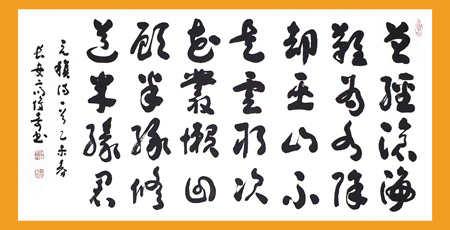 曾經滄海
難為水除
却巫山不
是雲取次
花叢懶回
顧半緣修
道半緣君
元稹詩一首乙未春
長安高書